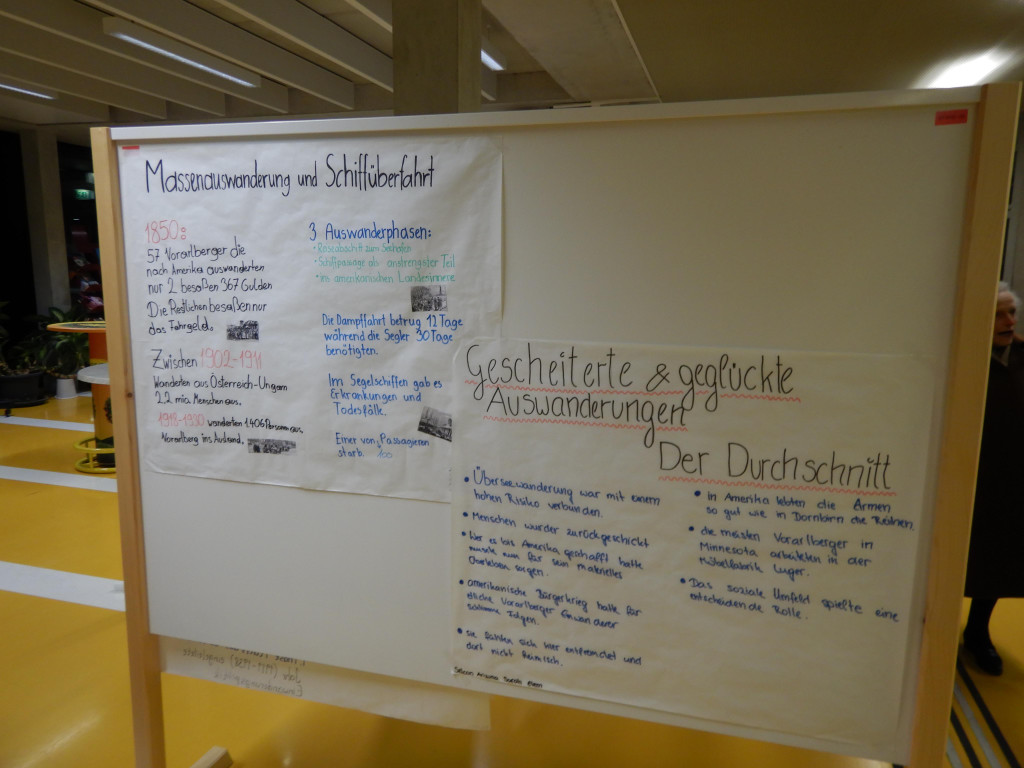 Massenauswanderung und Schiffüberfahrt
1850:
57 Vorarlberger die
nach Amerika auswanderten
nur 2 besaßen 367 Gulden
Die Restlichen besaßen nur
das Fahrgeld.
Zwischen 1902-1911
Wanderten aus Österreich-Ungarn
2.2 mio. Menschen aus.
wanderten 1.406 Personen aus
Vorarlberg ins Ausland.
3 Auswanderphasen:
zum Seehafen
Schiffpassage als anstrengster Teil
im amerikanischen Landesinnere
Die Dampffahrt betrug 12 Tage
während die Segler 30 Tage
benötigten.
Im Segelschiffen gab es
Erkrankungen und
Todesfälle.
Einer von 100 Passagieren
starb.
Gescheiterte & geglückte
Auswanderungen
Der Durchschnitt
Überseewanderung war mit einem
hohen Risiko verbunden.
Menschen wurden zurückgeschickt
Wer es bis Amerika geschafft hatte
musste nun für sein materielles
Überleben sorgen.
amerikanische Bürgerkrieg hatte für
etliche Vorarlberger Einwanderer
schlimme Folgen.
sie fühlten sich hier entfremdet und
dort nicht heimisch.
in Amerika lebten die Armen
so gut wie in Dornbirn die Reichen.
die meisten Vorarlberger in
Minnesota arbeiteten in der
Möbelfabrik Luger.
Das soziale Umfeld spielte eine
entscheidende Rolle.